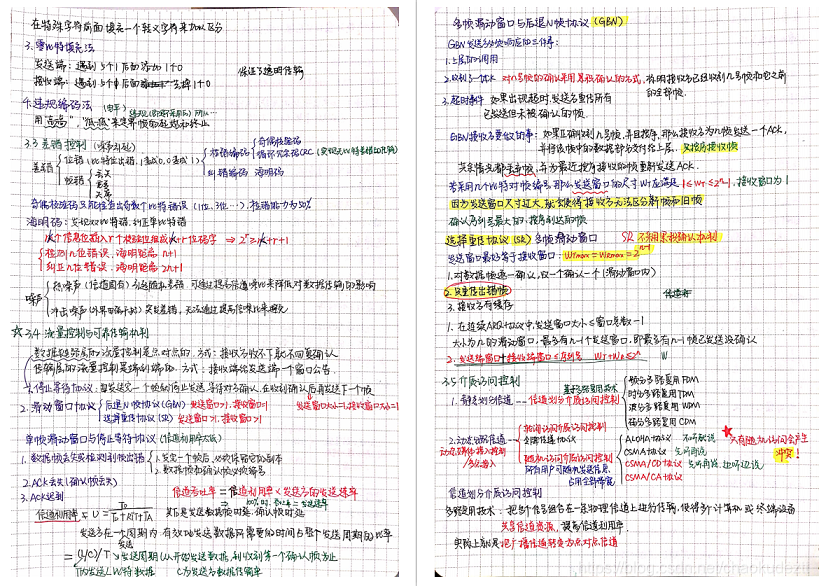 在特殊字符前面填充一个转义字符来加以区分
3. 零比特填充法
发送端：遇到5个1后面添加1个0
接收端：遇到5个1后面去掉1个0
保证了透明传输
4. 违规编码法
用"高高"，"低低"来定界帧的起始和终止
3.3 差错控制
差错
位错（比特位出错，1变成0，0变成1）
帧错
丢失
重复
失序
检错编码
奇偶校验码
循环冗余码CRC
纠错编码 海明码
奇偶校验码只能检查出奇数个比特错误（1位，3位…），检错能力为50%
海明码：发现双比特错，纠正单比特错
k个信息位插入r个校验位组成k+r位码字 => 2^r ≥ k+r+1
检测n位错误，海明距离 n+1
纠正n位错误，海明距离 2n+1
噪声
热噪声（信道固有）引起随机差错，可通过提高信噪比来降低对数据传输的影响
冲击噪声（外界因素）突发差错，无法通过提高信噪比来避免
☆ 3.4 流量控制与可靠传输机制
数据链路层的流量控制是点对点的，方式：接收方收不下就不回复确认
传输层的流量控制是端到端，方式：接收端给发送端一个窗口公告
1. 停止等待协议：每发送一个帧就停止发送，等待对方确认，在收到确认后再发送下一个帧
2. 滑动窗口协议
后退N帧协议(GBN) 发送窗口>1，接收窗口=1
选择重传协议(SR) 发送窗口>1，接收窗口>1
发送窗口=1，接收窗口=1
单帧滑动窗口与停止等待协议（信道利用率太低）
1. 数据帧丢失或检测到帧出错
1. 发完一个帧后，必须保留它的副本
2. 数据帧和确认帧必须编号
2. ACK丢失（确认帧丢失）
3. ACK迟到
信道吞吐率 = 信道利用率 × 发送方的发送速率
信道利用率
发送方在一个周期内有效地发送数据所需要的时间占整个发送周期的比率
= (L/C)/T
T内发送L比特数据 C为发送方数据传输率
多帧滑动窗口与后退N帧协议 (GBN)
GBN发送方必须响应的三件事：
1. 上层的调用
2. 收到了一个ACK 对n号帧的确认采用累积确认的方式，标明接收方已经收到n号帧和它之前的全部帧。
3. 超时事件 如果出现超时，发送方重传所有已发送但未被确认的帧。
GBN接收方要做的事：如果正确收到n号帧，并且按序，那么接收方为n帧发送一个ACK，
并将该帧中的数据部分交付给上层，只按序接收帧
其余情况都丢弃帧，并为最近按序接收的帧重新发送ACK.
若采用n个比特对帧编号，那么发送窗口的尺寸WT应满足 1≤WT≤2^n-1，接收窗口为1
因为发送窗口尺寸过大，就会使得接收方无法区分新帧和旧帧
选择重传协议 (SR) 多帧滑动窗口
发送窗口最好等于接收窗口： WTmax = WRmax = 2^(n-1)
1. 对数据帧逐一确认，收一个确认一个（滑动窗口内）
2. 只重传出错帧
3. 接收方有缓存
1. 在连续ARQ协议中，发送窗口大小≤窗口总数-1
2. 发送端窗口+接收端窗口≤ WT+WR≤2^n
3.5 介质访问控制
1. 静态划分信道
信道划分介质访问控制
频分多路复用 FDM
时分多路复用 TDM
波分多路复用 WDM
码分多路复用 CDM
2. 动态分配信道
轮询访问介质访问控制
随机访问介质访问控制
所有用户可随机发送信息，占用全部带宽
ALOHA协议 不听就说
CSMA协议 先听再说
CSMA/CD协议 先听再说，边听边说
CSMA/CA协议
★ 只有随机访问会产生冲突！
信道划分介质访问控制
多路复用技术：把多个信号组合在一条物理信道上进行传输，使得多个计算机或终端设备
共享信道资源，提高信道利用率.
实际上就是把广播信道转变为点对点信道